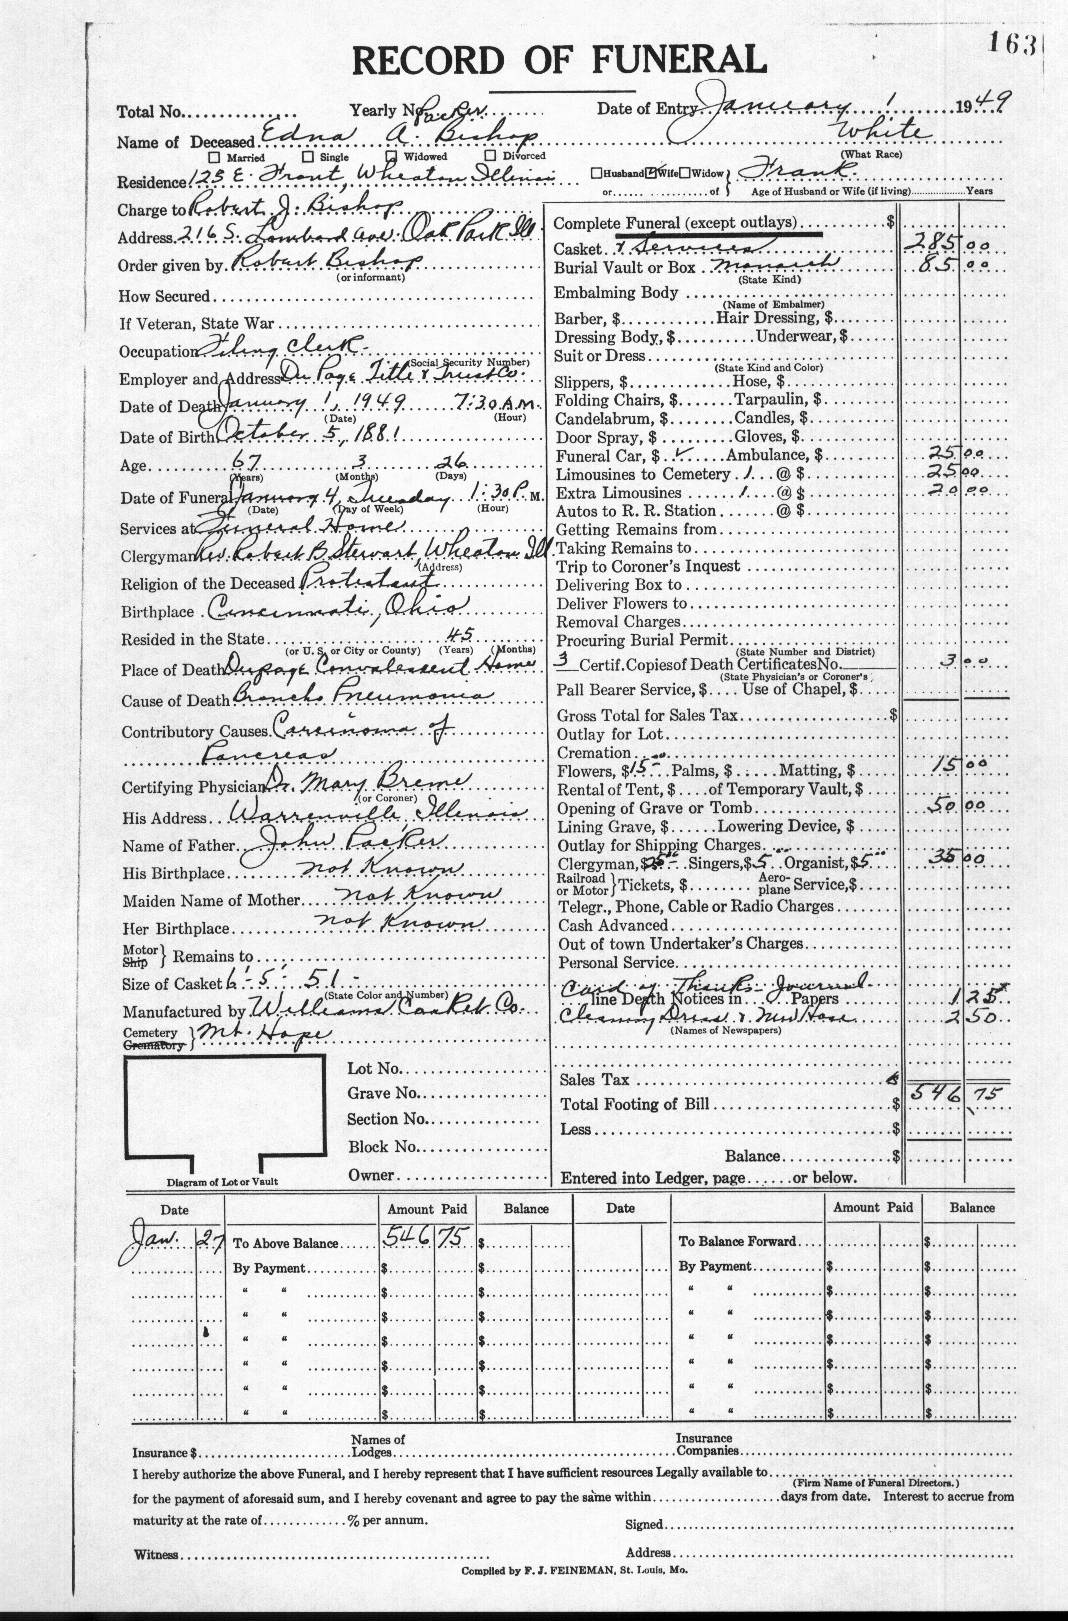 163
RECORD OF FUNERAL
Total No.............. Yearly No. Packer Date of Entry January 1 1949
Name of Deceased Edna A. Bishop White
☐ Married ☐ Single ☑ Widowed ☐ Divorced (What Race)
Residence 125 E. Front, Wheaton Illinois ☐Husband ☑Wife ☐Widow } Frank
or.......... of Age of Husband or Wife (if living)..........Years
Charge to Robert J. Bishop
Address 216 S. Lombard Ave. Oak Park Ill
Order given by Robert Bishop
(or informant)
How Secured
If Veteran, State War
Occupation Filing Clerk
(Social Security Number)
Employer and Address Du Page Title & Trust Co.
Date of Death January 1, 1949 7:30 A.M.
(Date) (Hour)
Date of Birth October 5, 1881
Age 67 3 26
(Years) (Months) (Days)
Date of Funeral January 4, Tuesday 1:30 P.M.
(Date) (Day of Week) (Hour)
Services at Funeral Home
Clergyman Rev. Robert B. Stewart, Wheaton, Ill.
(Address)
Religion of the Deceased Protestant
Birthplace Cincinnati, Ohio
Resided in the State 45
(or U. S. or City or County) (Years) (Months)
Place of Death Dupage Convalescent Home
Cause of Death Broncho Pneumonia
Contributory Causes Carcinoma of
Pancreas
Certifying Physician Dr. Mary Breme
(or Coroner)
His Address Warrenville, Illinois
Name of Father John Packer
His Birthplace not Known
Maiden Name of Mother not Known
Her Birthplace not Known
Motor Ship } Remains to
Size of Casket 6'-5" 51-
(State Color and Number)
Manufactured by Williams Casket Co.
Cemetery Crematory } Mt. Hope
Lot No.
Grave No.
Section No.
Block No.
Owner
Diagram of Lot or Vault
Complete Funeral (except outlays) $
Casket & Services 285 00
Burial Vault or Box Monarch 85 00
(State Kind)
Embalming Body
(Name of Embalmer)
Barber, $ Hair Dressing, $
Dressing Body, $ Underwear, $
Suit or Dress
(State Kind and Color)
Slippers, $ Hose, $
Folding Chairs, $ Tarpaulin, $
Candelabrum, $ Candles, $
Door Spray, $ Gloves, $
Funeral Car, $ ✓ Ambulance, $ 25 00
Limousines to Cemetery 1 @ $ 25 00
Extra Limousines 1 @ $ 20 00
Autos to R. R. Station @ $
Getting Remains from
Taking Remains to
Trip to Coroner's Inquest
Delivering Box to
Deliver Flowers to
Removal Charges
Procuring Burial Permit
(State Number and District)
3 Certif. Copies of Death Certificates No. 3 00
(State Physician's or Coroner's)
Pall Bearer Service, $ Use of Chapel, $
Gross Total for Sales Tax $
Outlay for Lot
Cremation
Flowers, $15 00 Palms, $ Matting, $ 15 00
Rental of Tent, $ of Temporary Vault, $
Opening of Grave or Tomb 50 00
Lining Grave, $ Lowering Device, $
Outlay for Shipping Charges
Clergyman, $25 Singers, $5 Organist, $5 35 00
Railroad or Motor } Tickets, $ Aeroplane Service, $
Telegr., Phone, Cable or Radio Charges
Cash Advanced
Out of town Undertaker's Charges
Personal Service
Card of Thanks - Journal
line Death Notices in Papers 1 25
Cleaning Dress & New Hose 2 50
(Names of Newspapers)
Sales Tax
Total Footing of Bill $ 546 75
Less $
Balance $
Entered into Ledger, page......or below.
Date Amount Paid Balance Date Amount Paid Balance
Jan. 27 To Above Balance 546 75 $ To Balance Forward $
By Payment $ $ By Payment $ $
" " $ $ " " $ $
" " $ $ " " $ $
" " $ $ " " $ $
" " $ $ " " $ $
" " $ $ " " $ $
" " $ $ " " $ $
Insurance $ Names of Lodges Insurance Companies
I hereby authorize the above Funeral, and I hereby represent that I have sufficient resources Legally available to
(Firm Name of Funeral Directors.)
for the payment of aforesaid sum, and I hereby covenant and agree to pay the same within..........days from date. Interest to accrue from
maturity at the rate of............% per annum.
Signed
Witness Address
Compiled by F. J. FEINEMAN, St. Louis, Mo.